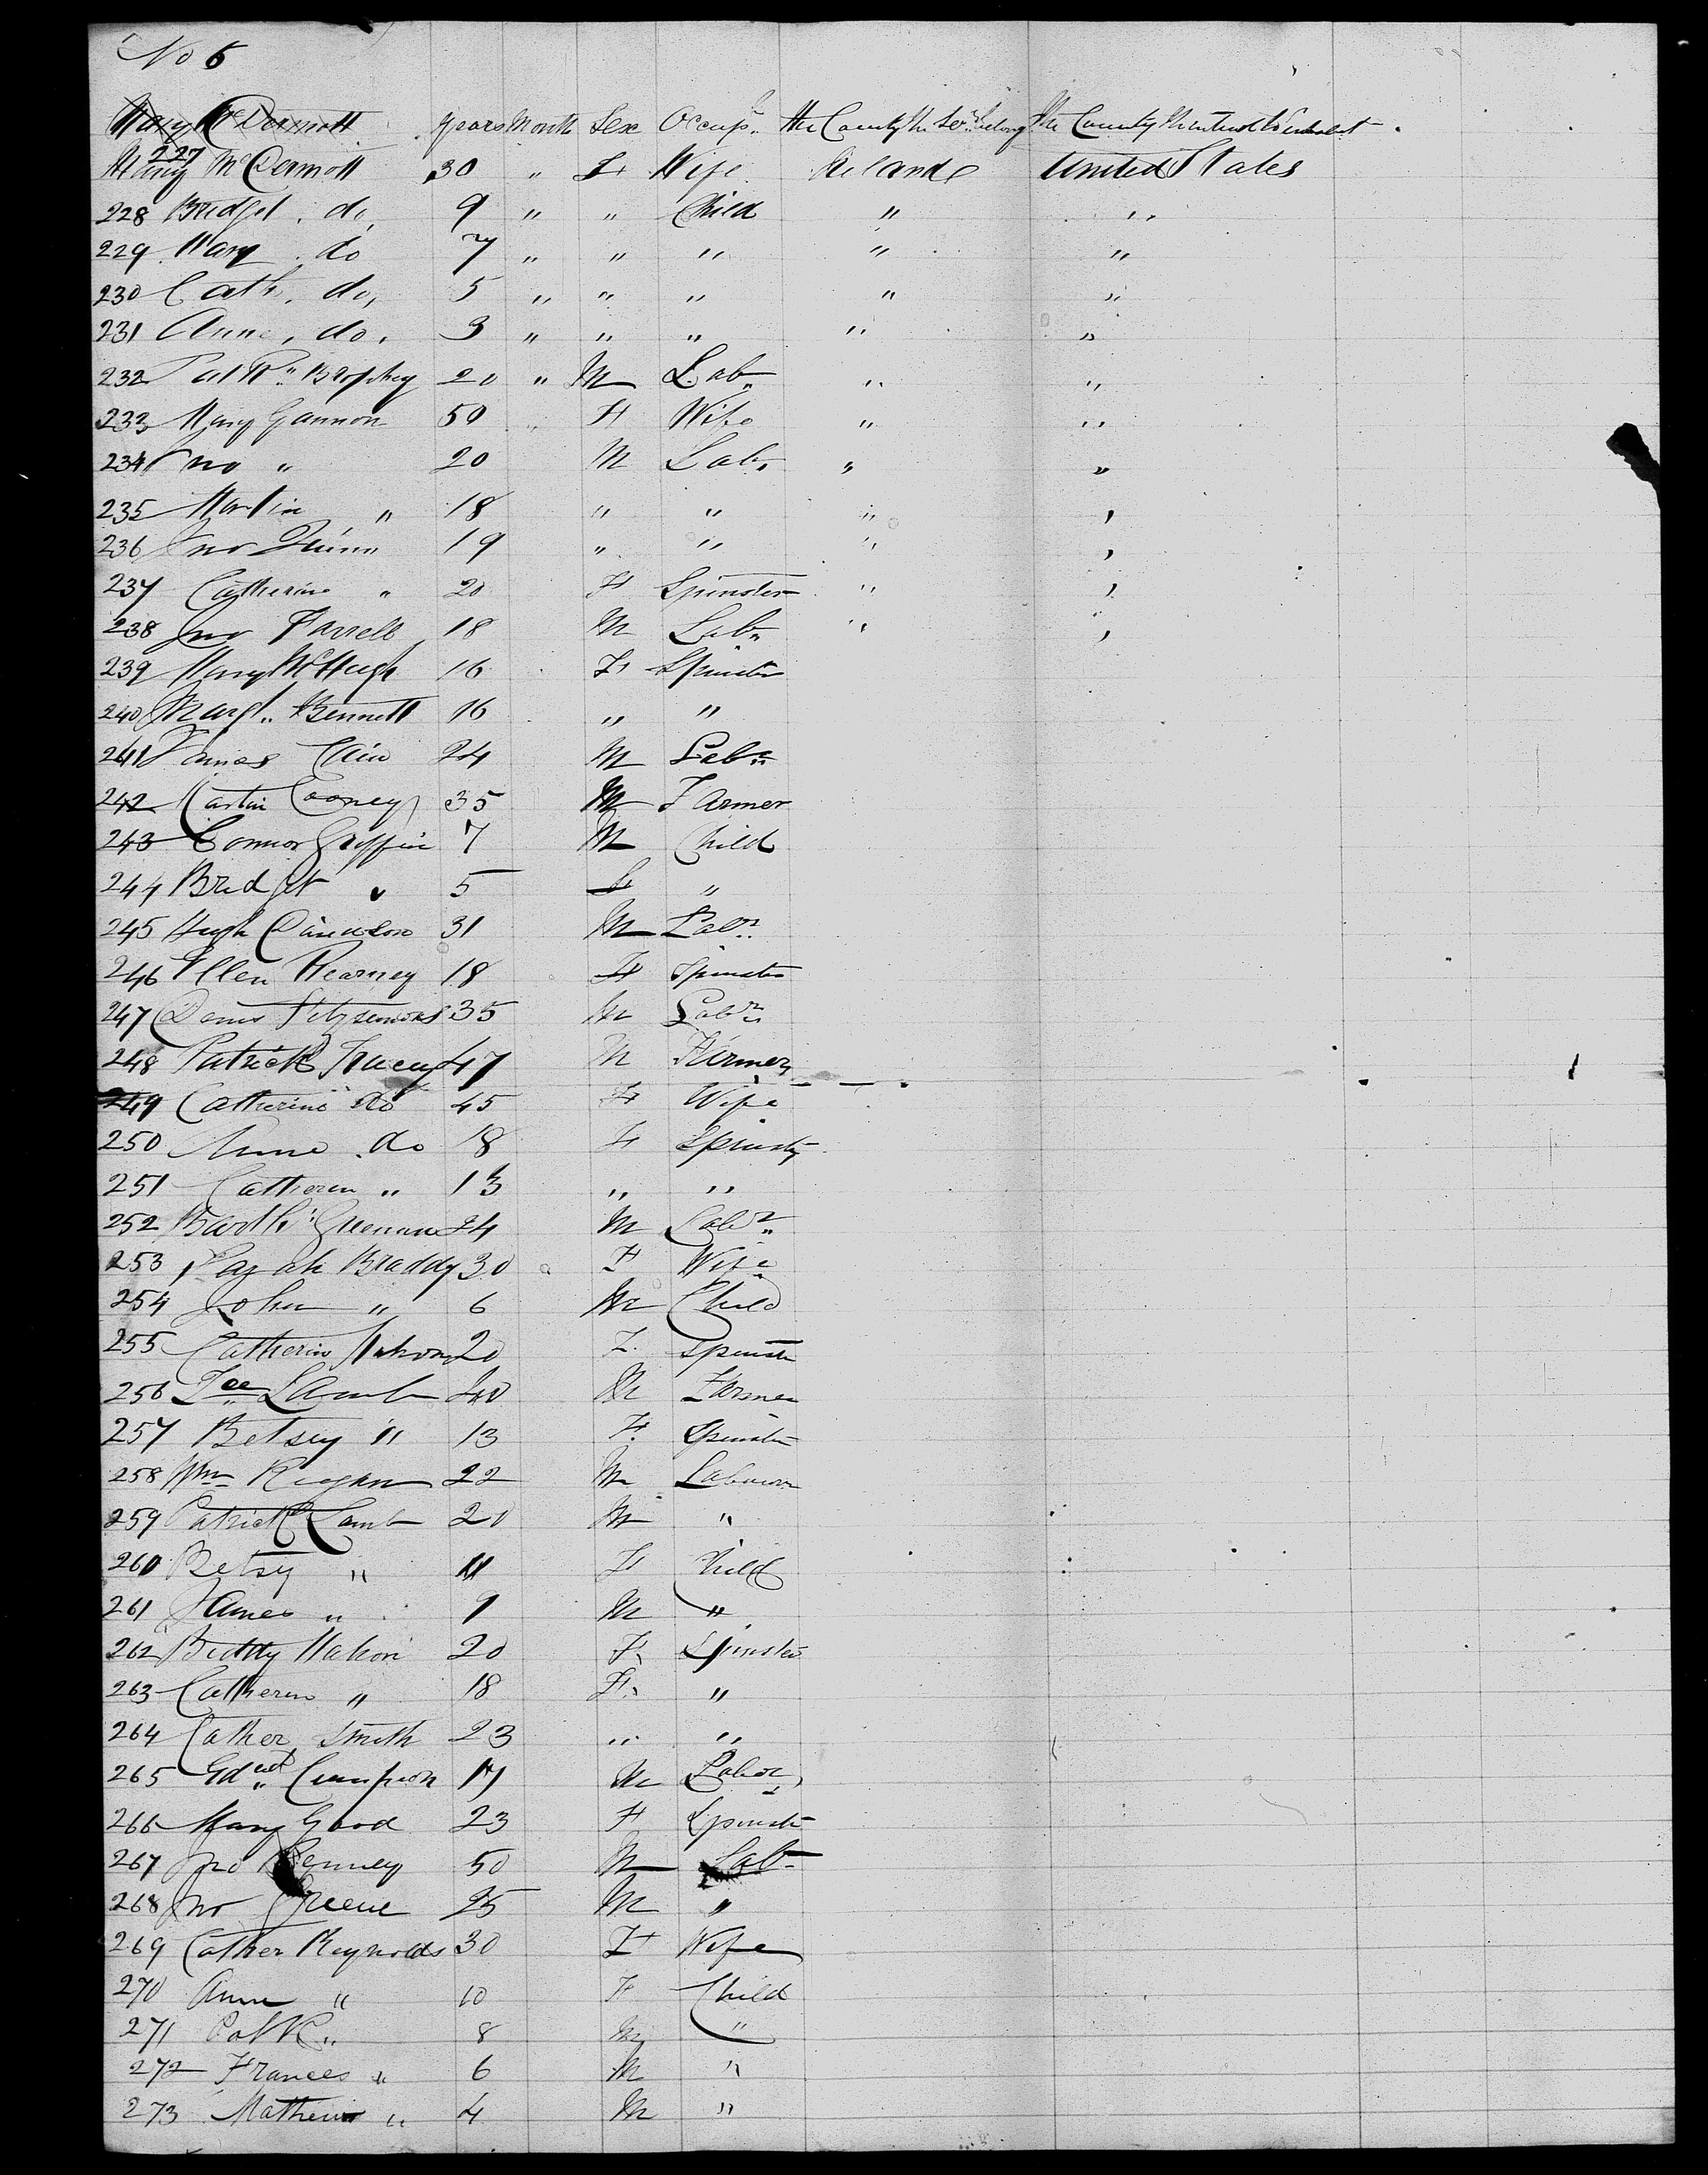 No 6
Mary McDermott years Month Sex Occupn. the County the belong the County
227 Mary McDermott 30 " F Wife Ireland United States
228 Bridget do, 9 " " Child " "
229 Mary do 7 " " " " "
230 Cath. do, 5 " " " " "
231 Anne, do, 3 " " " " "
232 Brophey 20 " M Lab " "
233 Mary Gannon 50 " F Wife " "
234 Jno " 20 M Lab, " "
235 Martin " 18 " " " ,
236 Jno Quinn 19 " " " ,
237 Catherine " 20 F Spinster " ,
238 Jno Farrell 18 M Lab" " ,
239 Mary McHugh 16 F Spinster
240 Margt. Bennett 16 " "
241 James Cain 24 M Labr
242 Martin Cooney 35 M Farmer
243 Connor Griffin 7 M Child
244 Bridget " 5 F "
245 Hugh 31 M Labr
246 Ellen Kearney 18 F Spinster
247 Denis Fitzsimons 35 M Labr
248 Patrick Tracey 47 M Farmer
249 Catherine do 45 F Wife
250 Anne do 18 F Spinstr
251 Catheren " 13 " "
252 Barth: 24 M Labr
253 Sarah Braddy 30 F Wife
254 John " 6 M Child
255 Catherin Mahon 20 F. Spinstr
256 Lamb 40 M Farmer
257 Betsey " 13 F. Spinster
258 Wm 22 M Labourer
259 Patrick Lamb 20 M "
260 Betsy " 11 F Child
261 James " 9 M "
262 Biddy Mahon 20 F Spinster
263 Catheren " 18 F "
264 Cather Smith 23 " "
265 Edwd 17 M Labor
266 Mary Good 23 F Spinster
267 Jno 50 M Lab
268 Jno Greene 25 M "
269 Cather Reynolds 30 F Wife
270 Ann " 10 F Child
271 PatK " 8 M "
272 Frances " 6 M "
273 Mathew " 4 M "